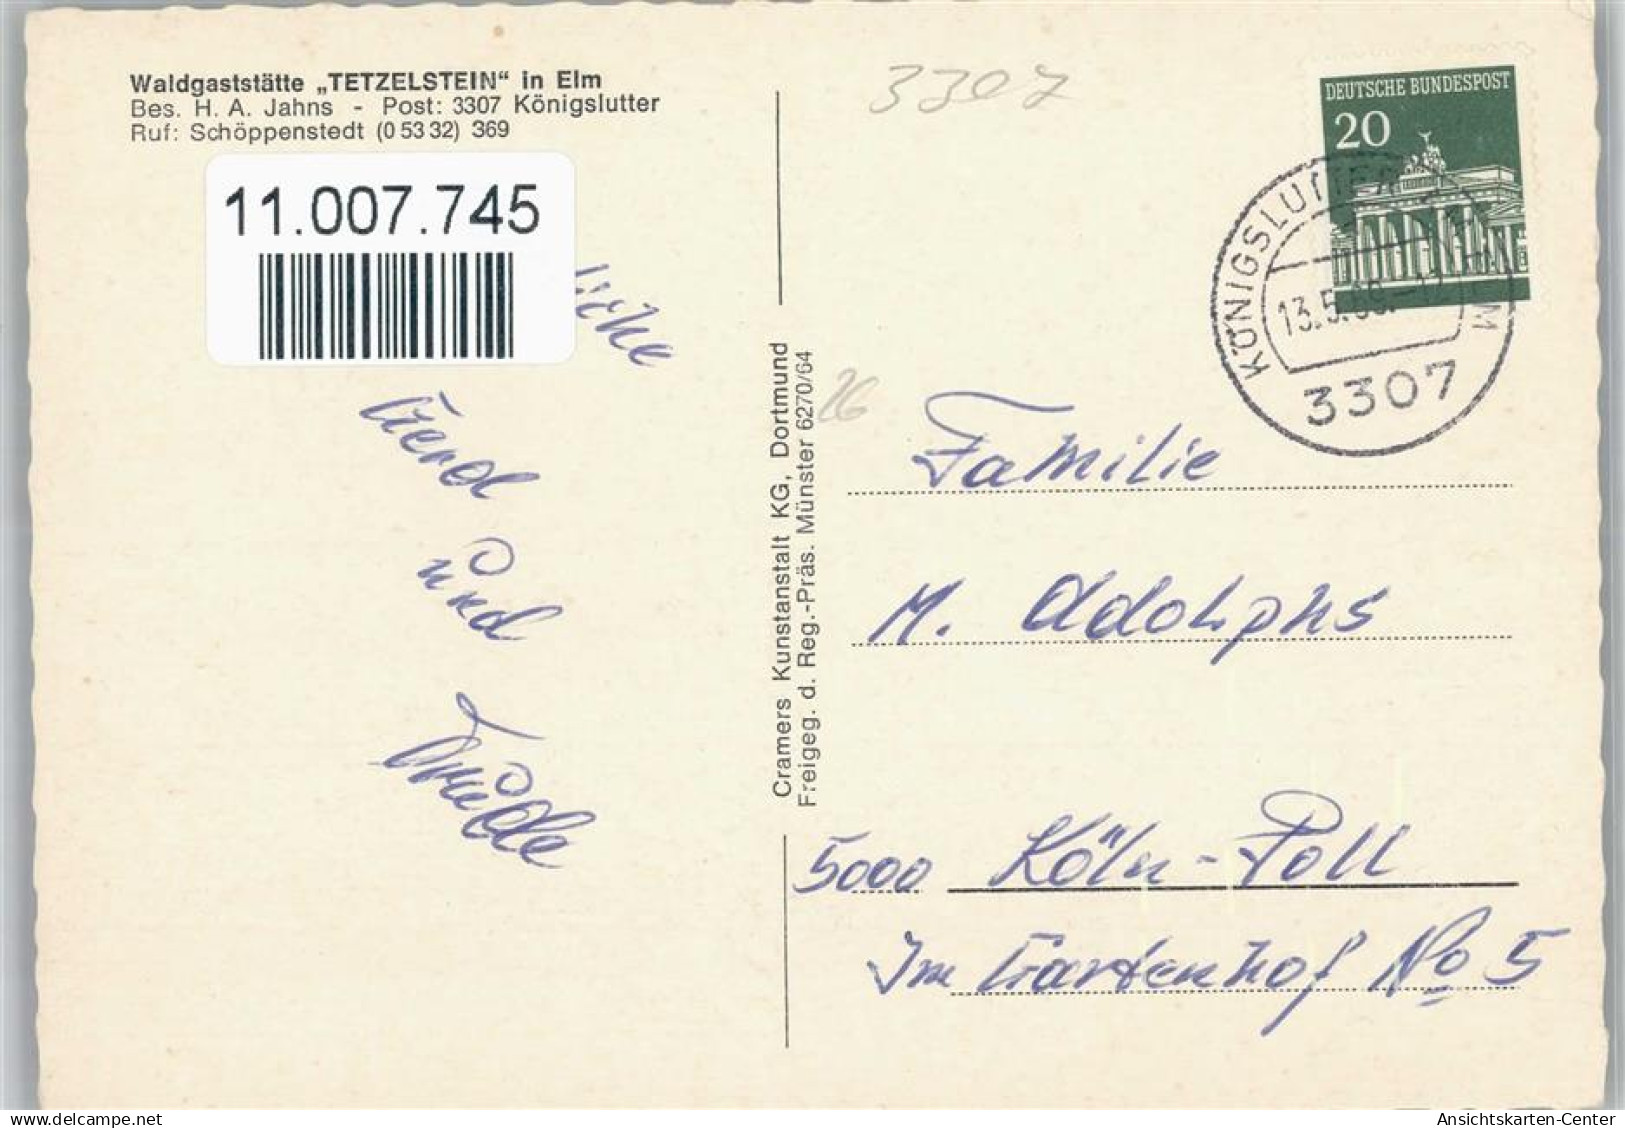 Waldgaststätte „TETZELSTEIN“ in Elm
Bes. H. A. Jahns - Post: 3307 Königslutter
Ruf: Schöppenstedt (0 53 32) 369
11.007.745
Gerd
und
Trudle
Cramers Kunstanstalt KG, Dortmund
Freigeg. d. Reg.-Präs. Münster 6270/64
3307
26
DEUTSCHE BUNDESPOST
20
KÖNIGSLUTTER
13.5.
3307
Familie
M. Adolphs
5000 Köln-Poll
Im Gartenhof No 5
delcampe.net
Ansichtskarten-Center